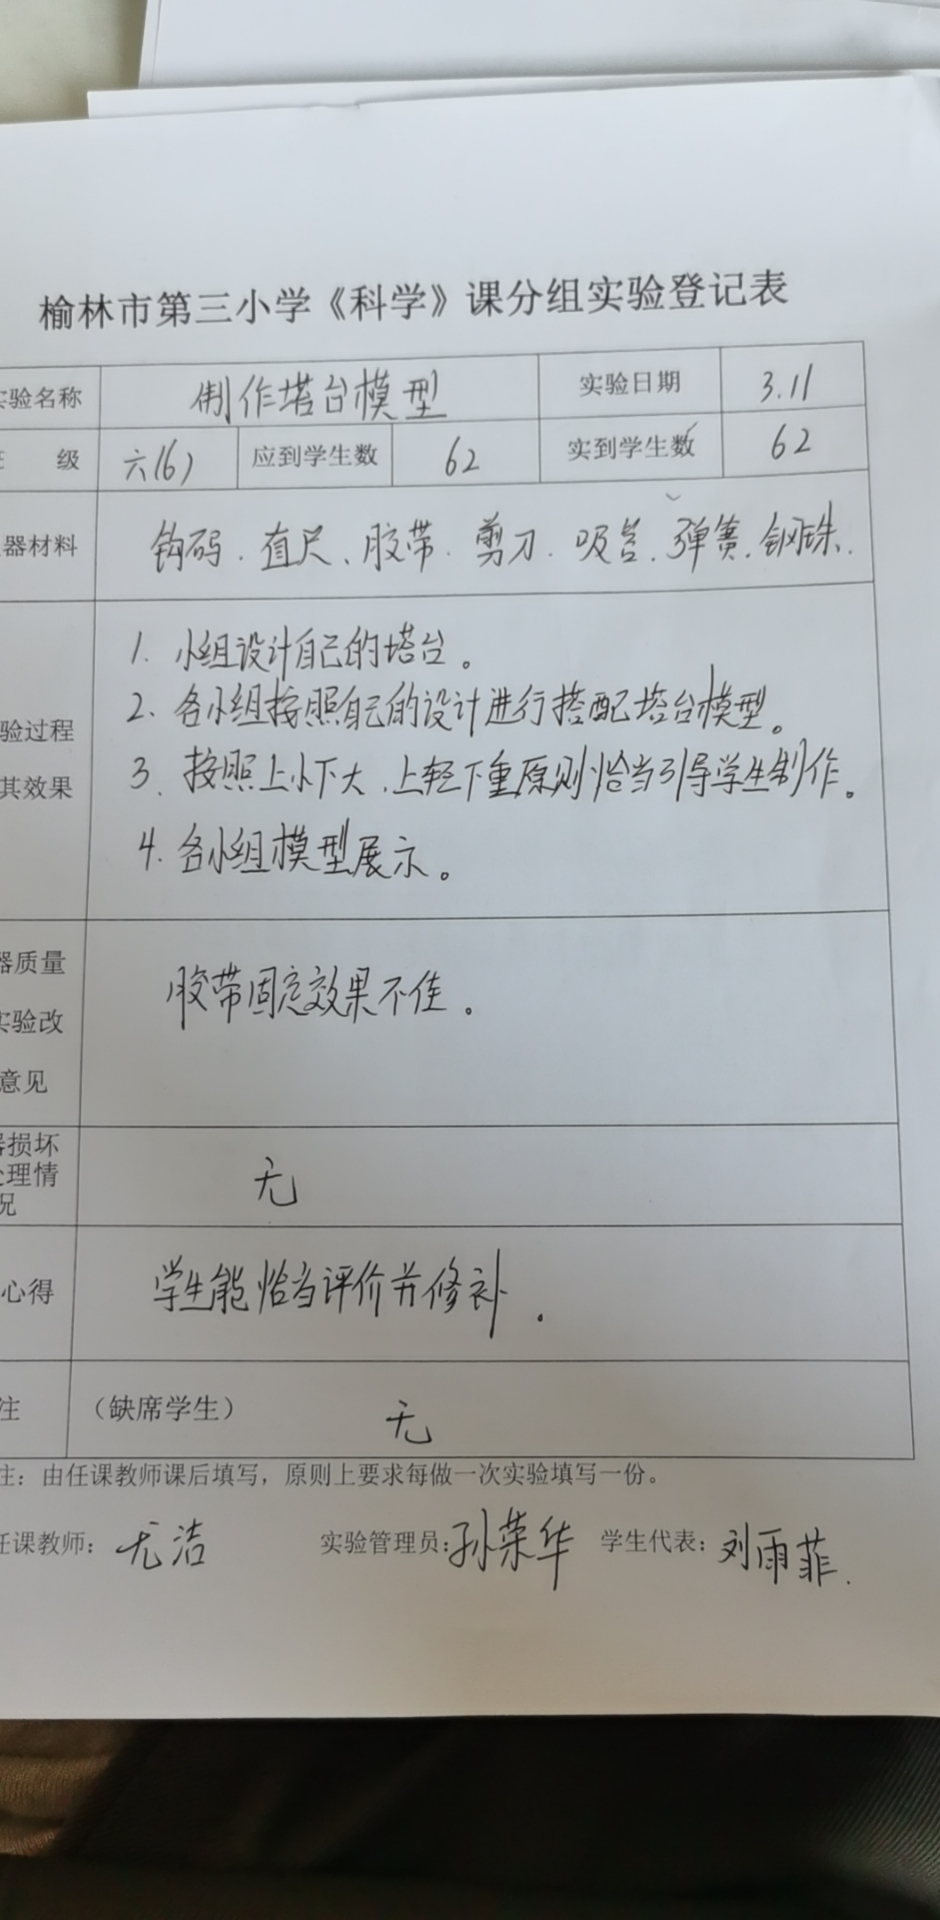 榆林市第三小学《科学》课分组实验登记表
实验名称 制作塔台模型 实验日期 3.11
级 六(6) 应到学生数 62 实到学生数 62
器材料 钩码、直尺、胶带、剪刀、吸管、弹簧、钢珠.
验过程
其效果
1. 小组设计自己的塔台。
2. 各小组按照自己的设计进行搭配塔台模型。
3、按照上小下大、上轻下重原则恰当引导学生制作。
4. 各小组模型展示。
器质量
实验改
意见
胶带固定效果不佳。
器损坏
处理情
况
无
心得 学生能恰当评价并修补.
注 （缺席学生） 无
注：由任课教师课后填写，原则上要求每做一次实验填写一份。
任课教师：尤洁 实验管理员：孙荣华 学生代表：刘雨菲.